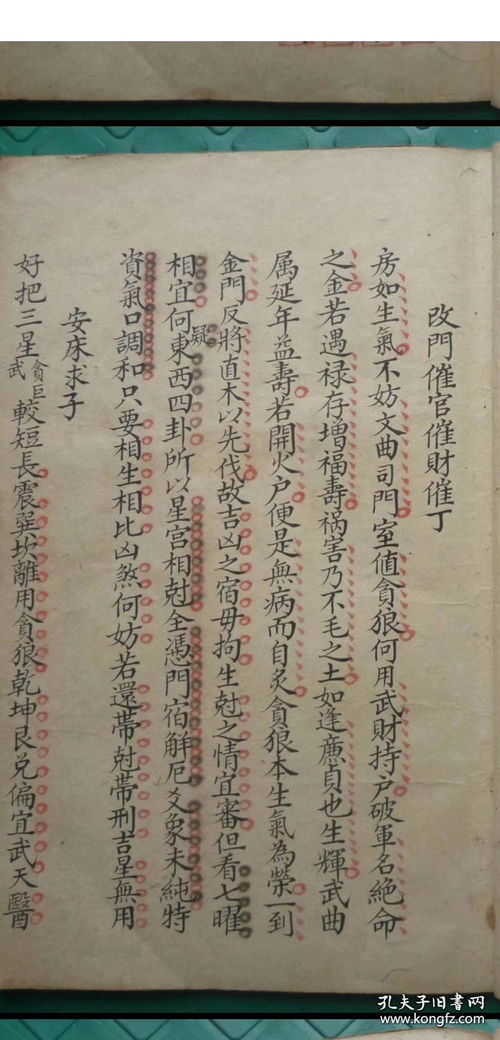 改門催官催財催丁
房如生氣不妨文曲司門室值貪狼何用武財持户破軍名絶命
之金若遇禄存增福壽祸害乃不毛之土如逢廉貞也生輝武曲
属延年益壽若開火户便是無病而自炙貪狼本生氣為榮一到
金門反將直木以先伐故吉凶之宿毋拘生尅之情宜審但看七曜
相宜何凝東西四卦所以星宮相尅全憑門宿觧厄爻象未純特
資氣口調和只要相生相比凶煞何妨若還帶尅帶刑吉星無用
安床求子
好把三星貪巨武較短長震巽坎離用貪狼乾坤艮兑偏宜武天醫
孔夫子旧書网
www.kongfz.com